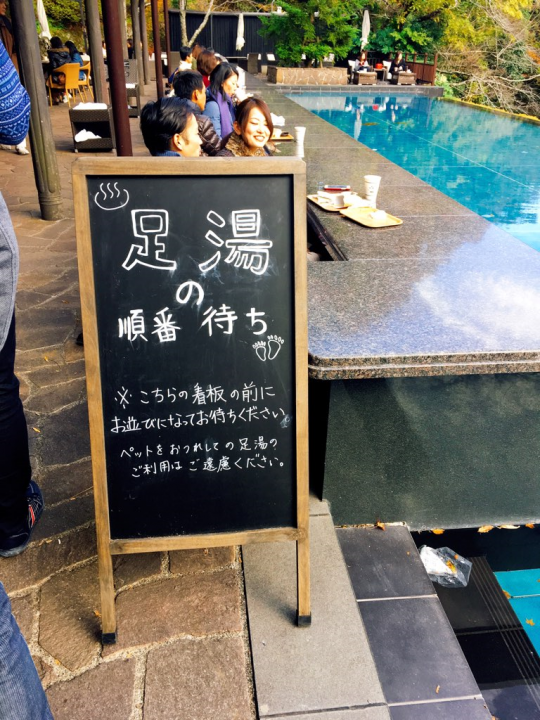 足湯
の
順番待ち
※こちらの看板の前に
お並びになってお待ちください
ペットをおつれしての足湯の
ご利用はご遠慮ください。